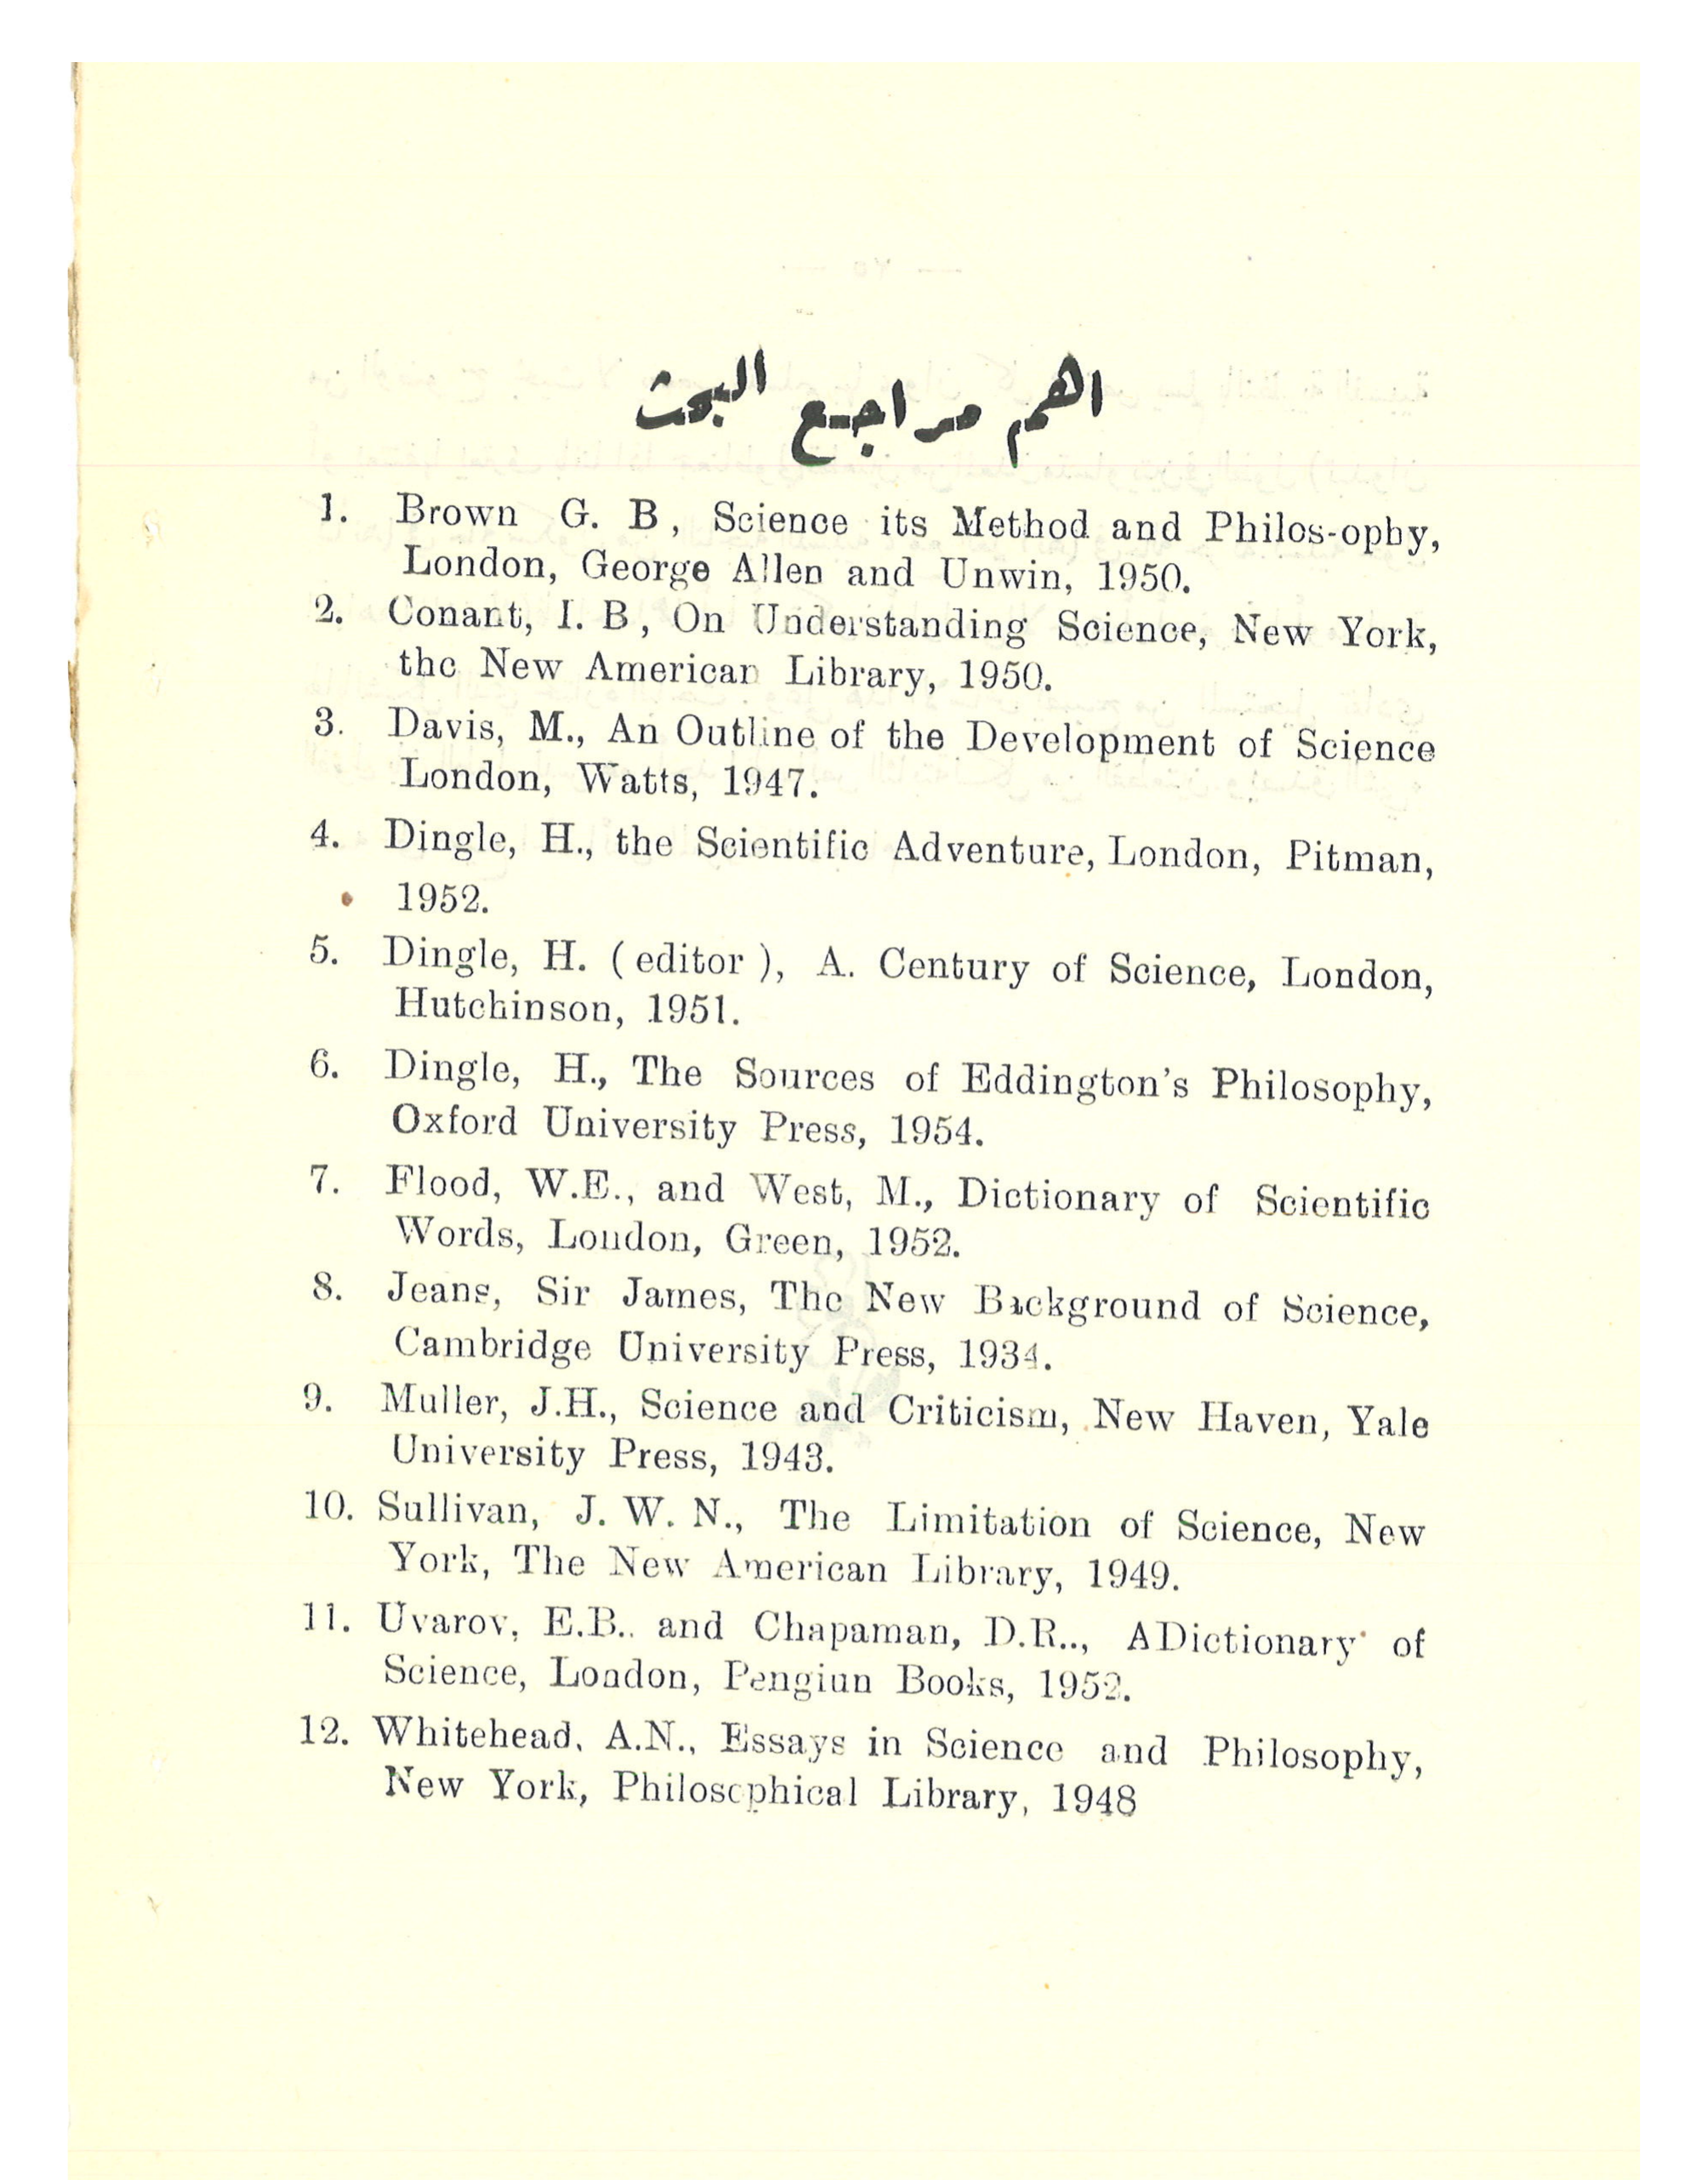 اهم مراجع البحث
1. Brown G. B, Science its Method and Philos-ophy,
London, George Allen and Unwin, 1950.
2. Conant, I. B, On Understanding Science, New York,
the New American Library, 1950.
3. Davis, M., An Outline of the Development of Science
London, Watts, 1947.
4. Dingle, H., the Scientific Adventure, London, Pitman,
1952.
5. Dingle, H. (editor), A. Century of Science, London,
Hutchinson, 1951.
6. Dingle, H., The Sources of Eddington's Philosophy,
Oxford University Press, 1954.
7. Flood, W.E., and West, M., Dictionary of Scientific
Words, London, Green, 1952.
8. Jeans, Sir James, The New Background of Science,
Cambridge University Press, 1934.
9. Muller, J.H., Science and Criticism, New Haven, Yale
University Press, 1943.
10. Sullivan, J. W. N., The Limitation of Science, New
York, The New American Library, 1949.
11. Uvarov, E.B.. and Chapaman, D.R.., ADictionary of
Science, London, Pengiun Books, 1952.
12. Whitehead, A.N., Essays in Science and Philosophy,
New York, Philosophical Library, 1948